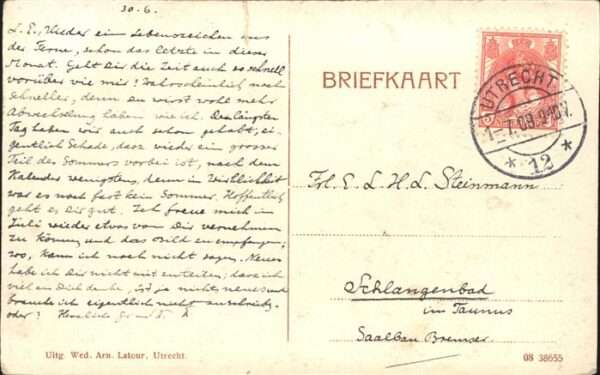 30.6.
L. E., Wieder ein Lebenszeichen aus
der Ferne, schon das letzte in dieser
Monat. Geht Dir die Zeit auch so schnell
vorüber wie mir? Wahrscheinlich noch
schneller, denn du wirst wohl mehr
Abwechselung haben wie ich. Den längsten
Tag haben wir auch schon gehabt; ei-
gentlich Schade, dasz wieder ein grosser
Teil des Sommers vorbei ist, nach dem
Kalender wenigstens, denn in Wirklichkeit
war es noch fast kein Sommer. Hoffentlich
geht es Dir gut. Ich freue mich im
Juli wieder etwas von Dir vernehmen
zu können und das Bild zu empfangen;
wo, kann ich noch nicht sagen. Neues
habe ich Dir nicht mitzuteilen; dasz ich
viel an Dich denke, ist ja nichts neues und
brauche ich eigentlich nicht zu schreiben,
oder? Herzliche
BRIEFKAART
UTRECHT
1-7.08.9-10V.
* 12 *
Frl. E. L. H. L. Steinmann
Schlangenbad
im Taunus
Saalbau Bremser
Uitg. Wed. Arn. Latour, Utrecht.
08 38655